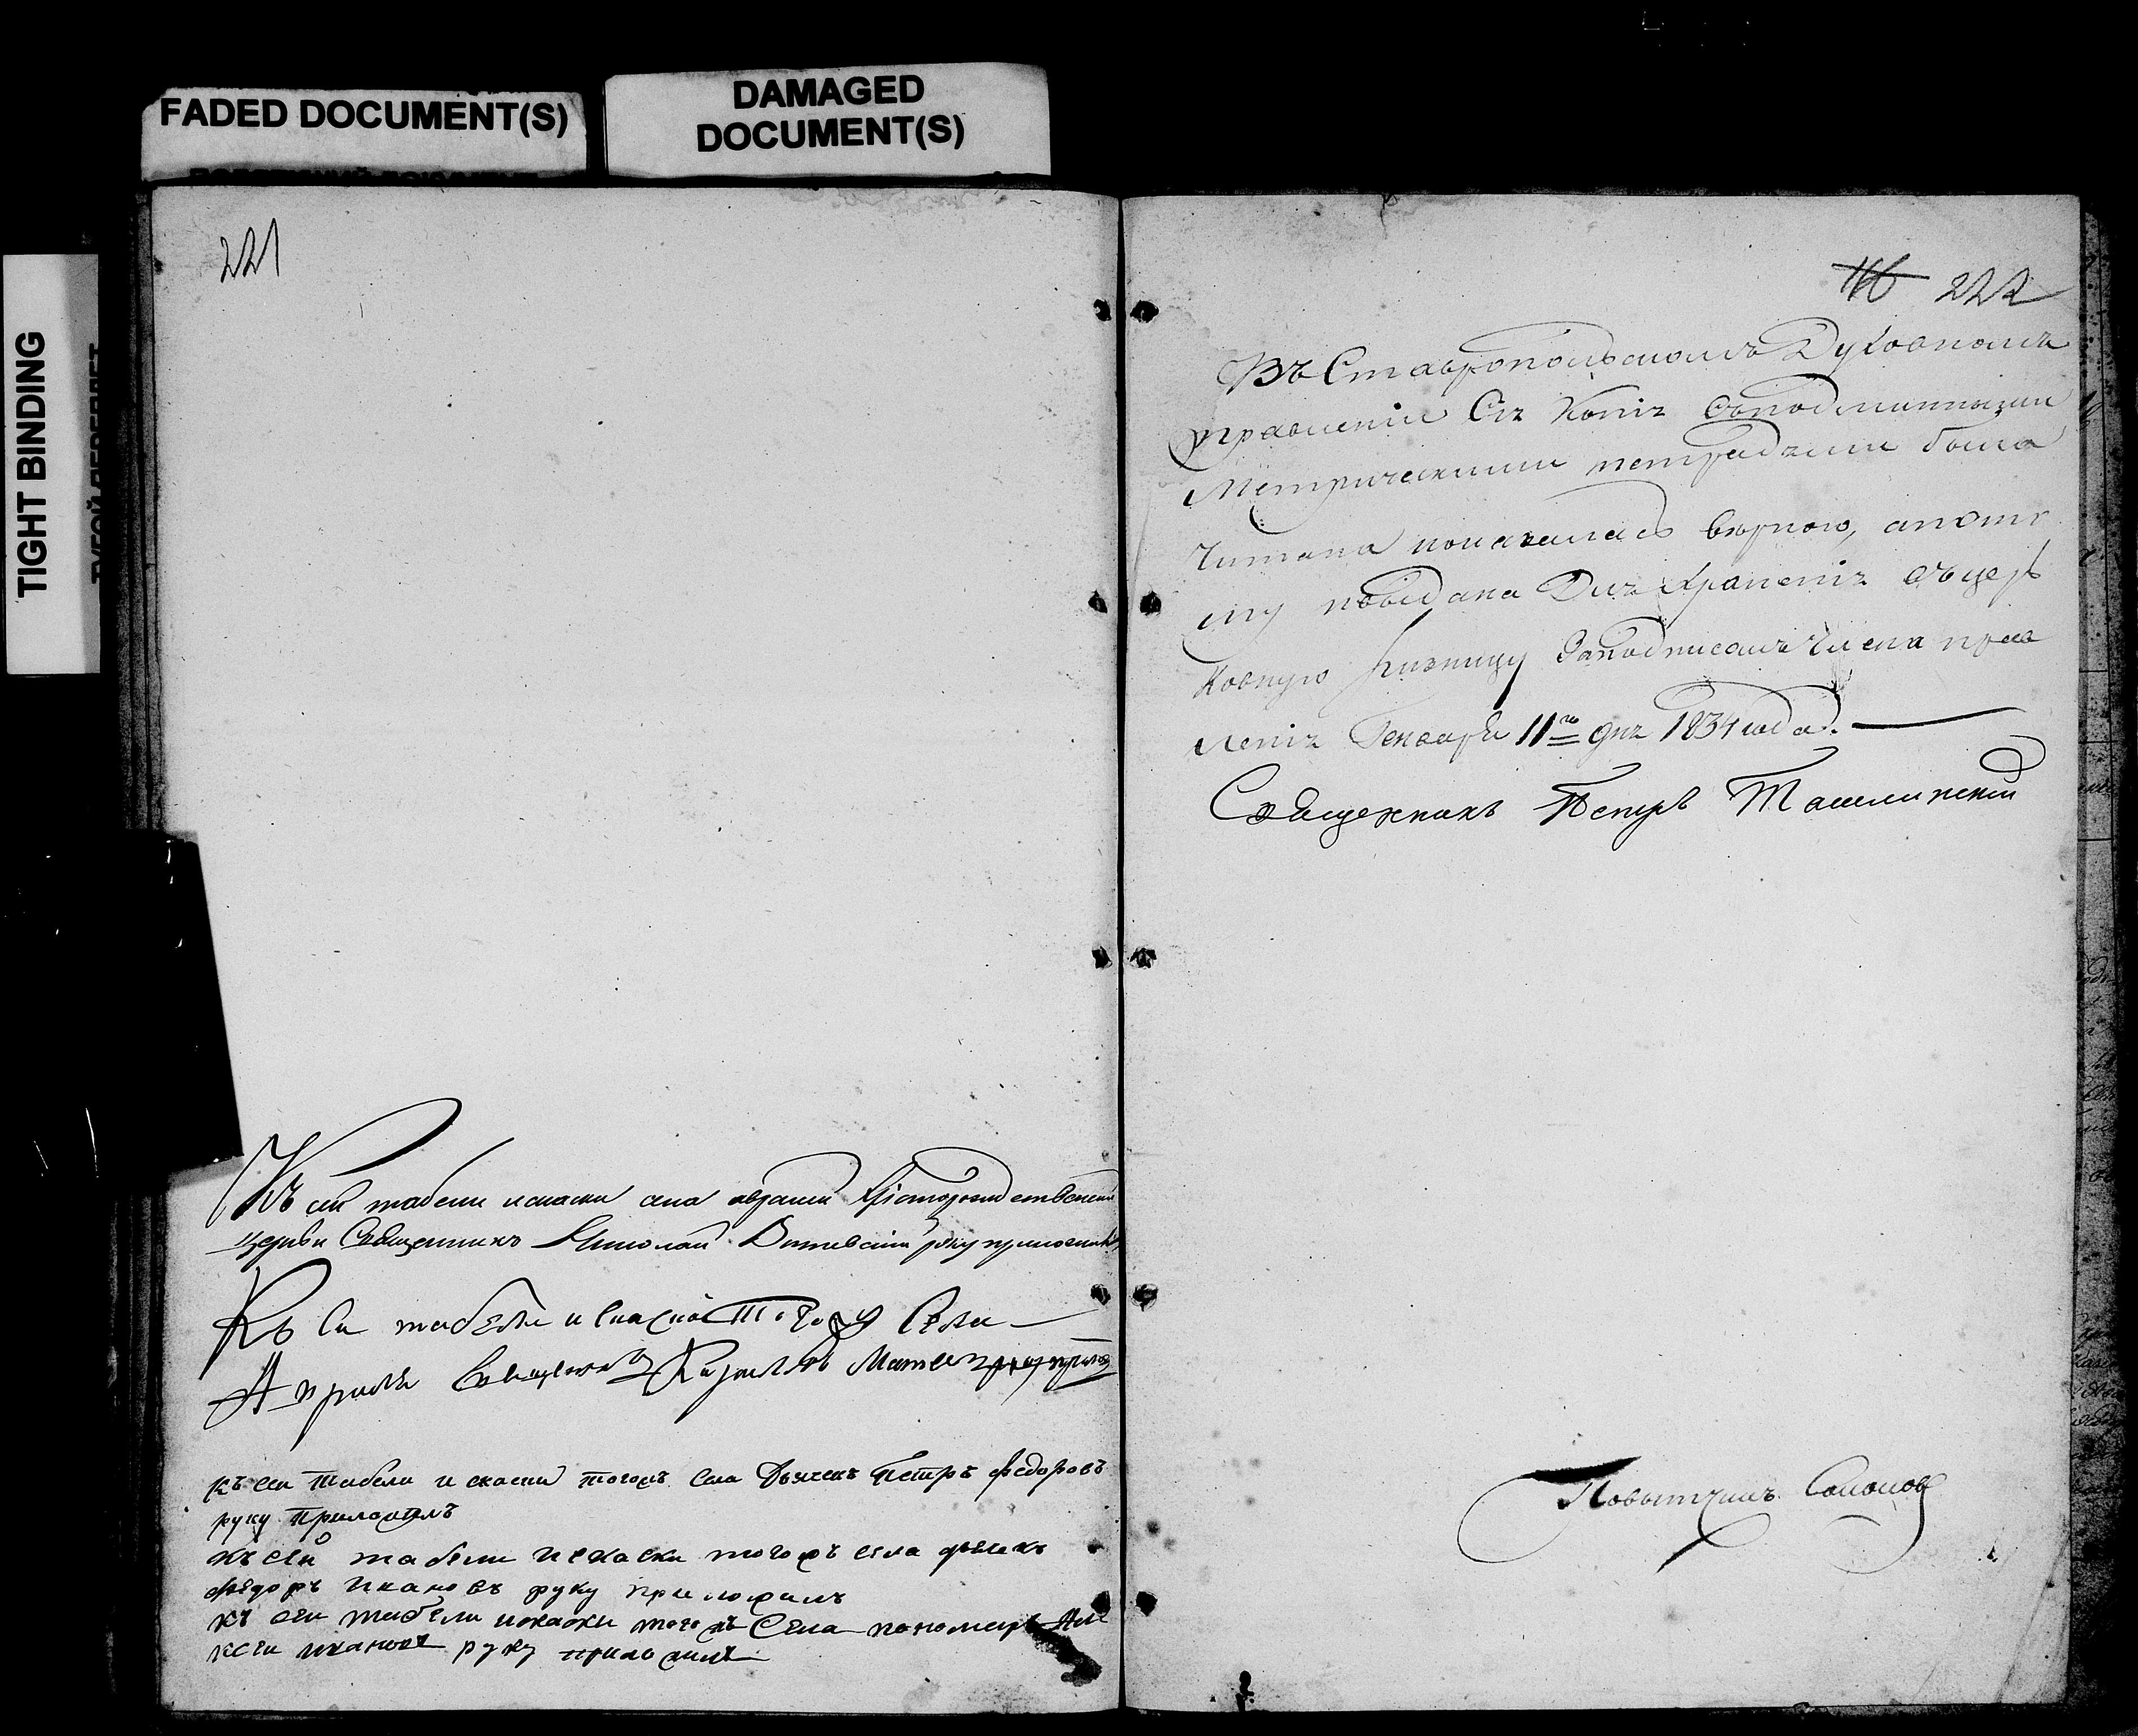 FADED DOCUMENT(S)
DAMAGED
DOCUMENT(S)
TIGHT BINDING
221
Къ сей табели и скаски села Христорождественской
церкви Священникъ Николай руку приложилъ
Къ сей табели и скаски того жъ Села
Священникъ
къ сей табели и скаски тогожъ села Дьячекъ Петръ Федоровъ
руку Приложилъ
къ сей табели и скаски тогожъ села дьячекъ
Федоръ Ивановъ руку приложилъ
къ сей табели и скаски того жъ Села пономарь Але
ксей Ивановъ руку приложилъ
116 222
Въ Ставропольскомъ Духовномъ
правленіи Сія Копія съподлинными
Метрическими тетрадями была
читана показалась верною, апото
му и выдана Для Храненія въцер
ковную ризницу Заподписомъ Члена прав
ленія Генваря 11го дня 1834 года.
Священникъ Петръ Ташлинскій
Повытчикъ Соколовъ